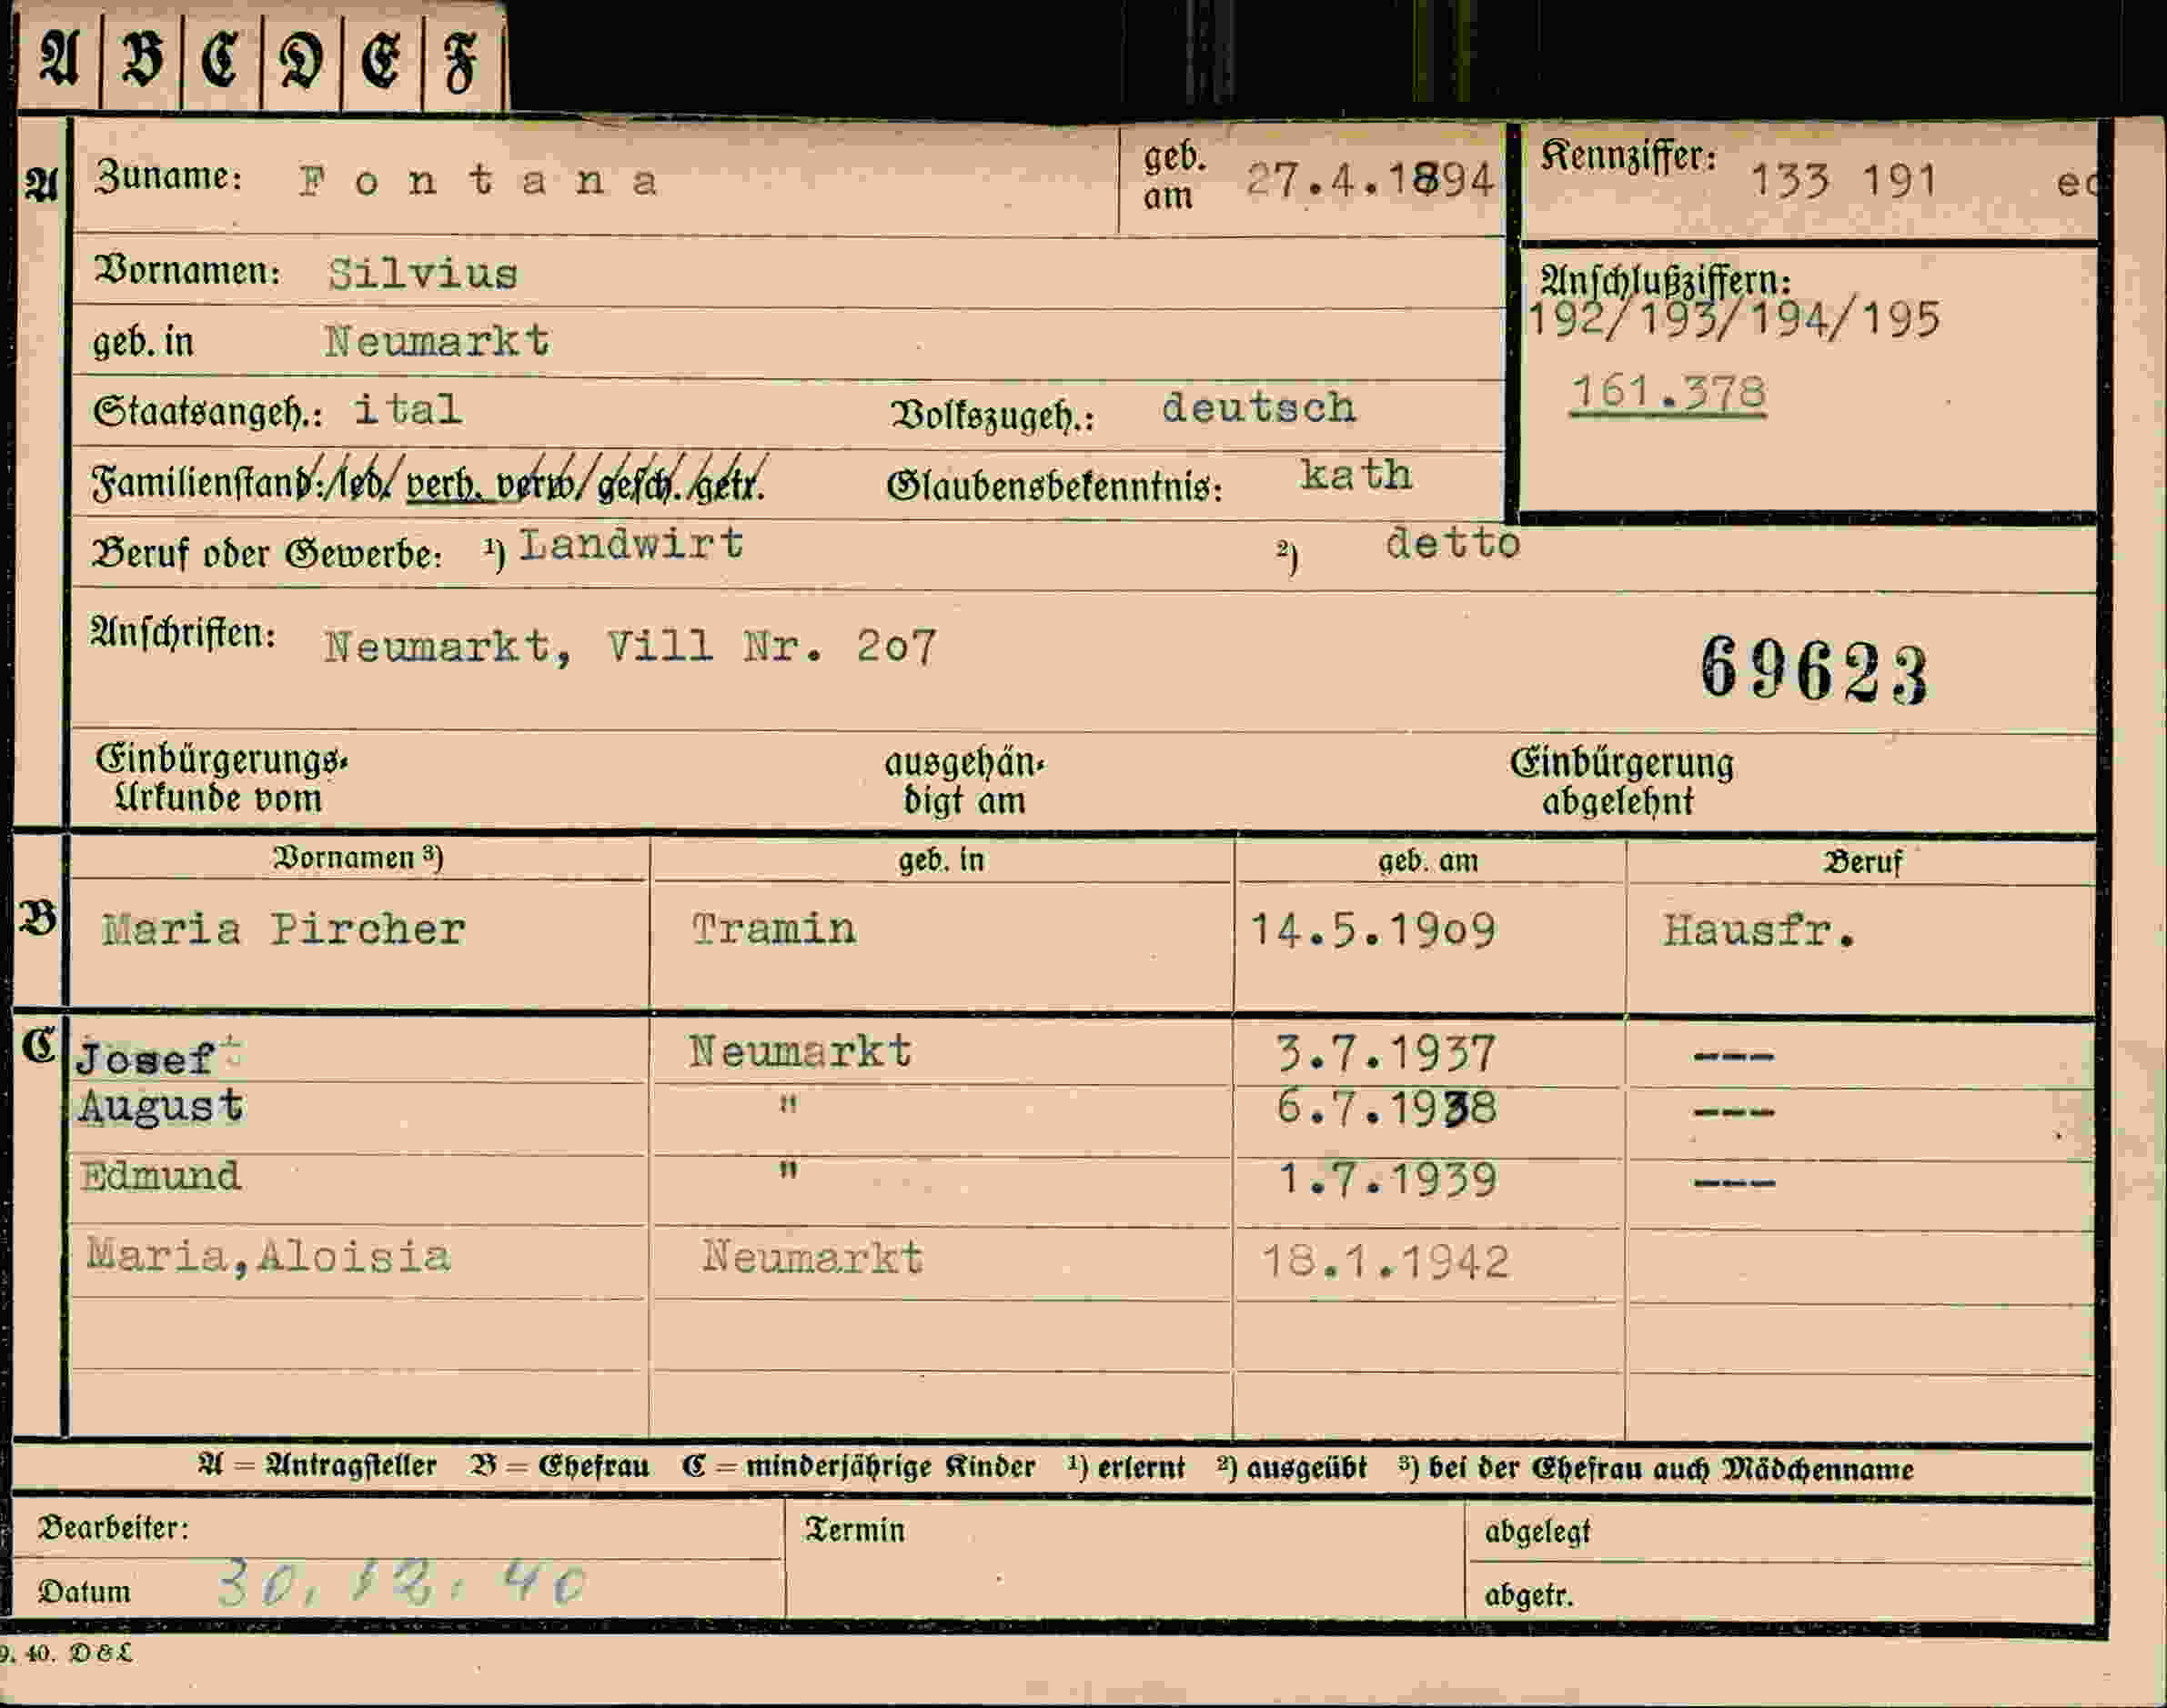 A B C D E F
A Zuname: Fontana geb. am 27.4.1894 Kennziffer: 133 191 ed
Vornamen: Silvius Anschlußziffern:
192/193/194/195
geb. in Neumarkt
161.378
Staatsangeh.: ital Volkszugeh.: deutsch
Familienstand: led. verh. verw. gesch. getr. Glaubensbekenntnis: kath
Beruf oder Gewerbe: ¹) Landwirt ²) detto
Anschriften: Neumarkt, Vill Nr. 2o7
69623
Einbürgerungs- ausgehän- Einbürgerung
Urkunde vom digt am abgelehnt
Vornamen ³) geb. in geb. am Beruf
B Maria Pircher Tramin 14.5.19o9 Hausfr.
C Josef Neumarkt 3.7.1937 ---
August " 6.7.1938 ---
Edmund " 1.7.1939 ---
Maria,Aloisia Neumarkt 18.1.1942
A = Antragsteller B = Ehefrau C = minderjährige Kinder ¹) erlernt ²) ausgeübt ³) bei der Ehefrau auch Mädchenname
Bearbeiter: Termin abgelegt
Datum 30.12.40 abgetr.
9. 40. D & L